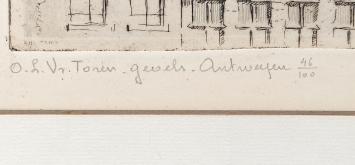 O.L.Vr. Toren - gevels - Antwerpen 46/100